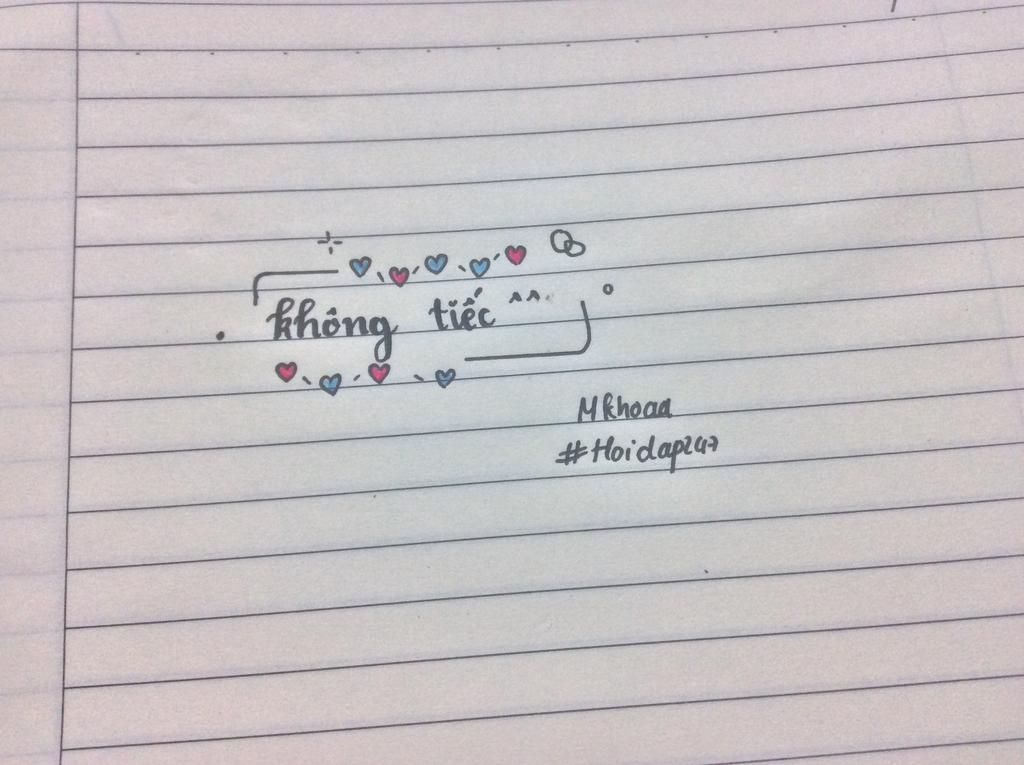 không tiếc ^^
Mkhoaa
#Hoidap247